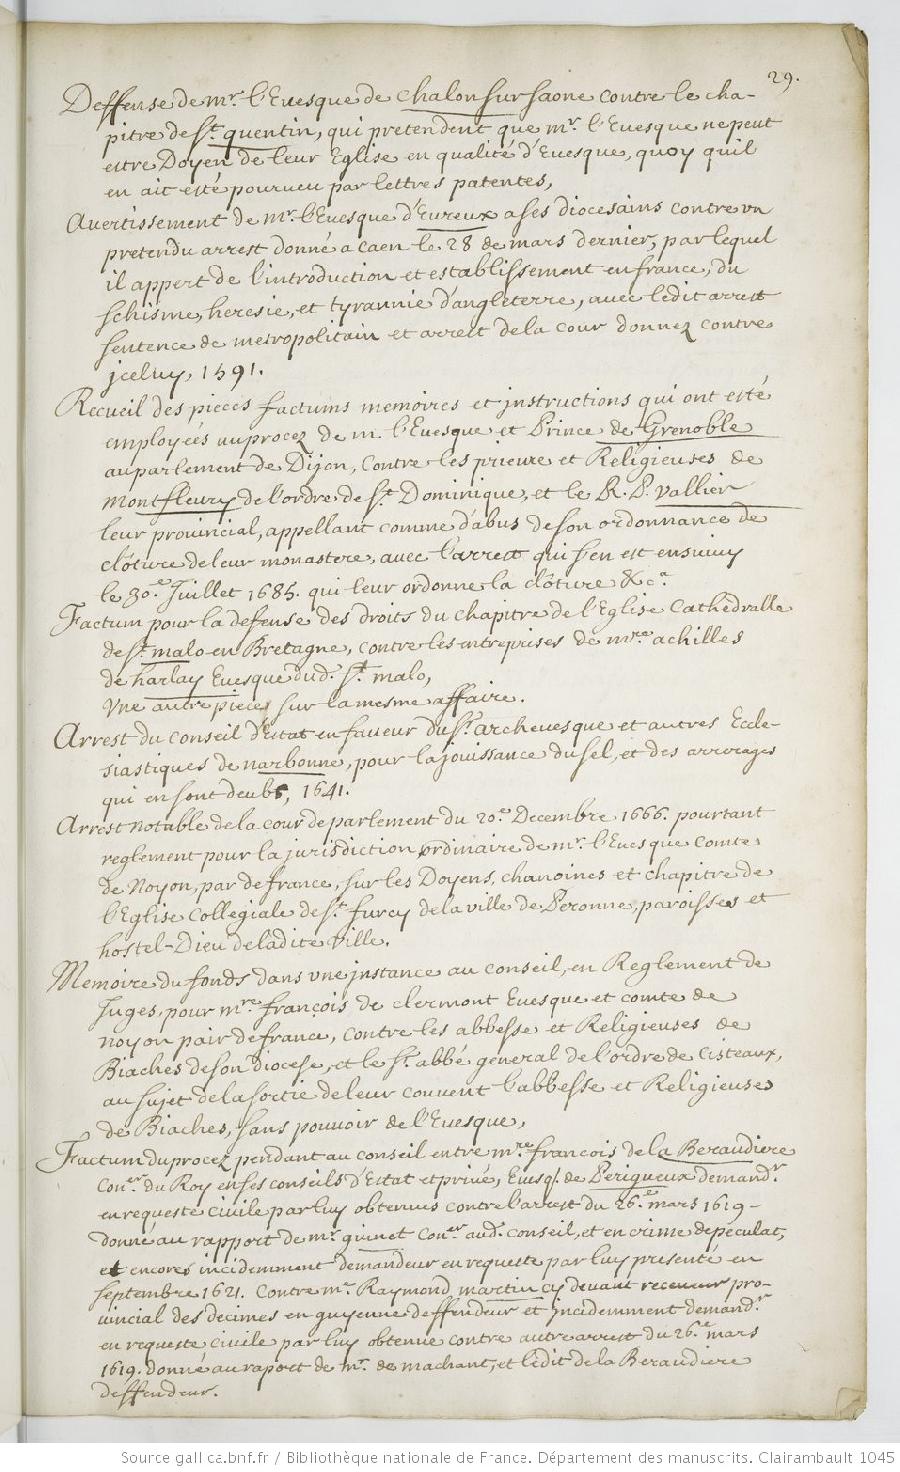 29.
Deffense de mr. l'Euesque de Chalon sur saone contre le cha-
pitre de St. quentin, qui pretendent que mr. l'Euesque ne peut
estre Doyen de leur Eglise en qualité d'Euesque, quoy quil
en ait esté pourueu par lettres patentes,
Auertissement de mr. l'Euesque d'Eureux a ses diocesains contre vn
pretendu arrest donné a Caen le 28 de mars dernier, par lequel
il appert de l'introduction et establissement en france, du
schisme, heresie, et tyrannie d'angleterre, auec ledit arrest
sentence de metropolitain et arrest de la cour donnez contre
jceluy, 1591.
Recueil des pieces factums memoires et jnstructions qui ont esté
employées au procez de m. l'Euesque et Prince de Grenoble
au parlement de Dijon, contre les prieure et Religieuses de
Montfleury de l'ordre de St. Dominique, et le R. P. Vallier
leur prouincial, appellant comme d'abus de son ordonnance de
clôture de leur monastere, auec l'arrest qui s'en est ensuiuy
le 30e. Juillet 1685. qui leur ordonne la clôture &ca.
Factum pour la defense des droits du chapitre de l'Eglise Cathedralle
de St. malo en Bretagne, contre les entreprises de mre. achilles
de harlay Euesque dud. St. malo,
Vne autre pieces sur la mesme affaire.
Arrest du conseil d'Estat en faueur du Sr. archeuesque et autres Eccle-
siastiques de narbonne, pour la jouissance du sel, et des arrerages
qui en sont deubs, 1641.
Arrest notable de la cour de parlement du 20e. Decembre 1666. pourtant
reglement pour la jurisdiction ordinaire de mr. l'Euesque Comte
de Noyon, par de france, sur les Doyens, chanoines et chapitre de
l'Eglise Collegiale de St. furcy de la ville de Peronne, paroisses et
hostel-Dieu de ladite Ville.
Memoire du fonds dans vne jnstance au conseil, en Reglement de
Juges, pour mre. françois de clermont Euesque et comte de
noyon pair de france, contre les abbesse et Religieuses de
Biaches de son diocese, et le Sr. abbé general de l'ordre de Cisteaux,
au sujet de la sortie de leur couuent l'abbesse et Religieuses
de Biaches, sans pouuoir de l'Euesque,
Factum du procez pendant au conseil entre mre. francois de la Beraudiere
Coner. du Roy en ses conseils d'Estat et priué, Euesq. de Perigueux demandr.
en requeste ciuile par luy obtenues contre l'arrest du 26e. mars 1619-
donné au rapport de mr. guinet Coner. aud. conseil, et en crime de peculat,
et encores incidemment demandeur en requeste par luy presenté en
septembre 1621. Contre mr. Raymond martin cy deuant receueur pro-
uincial des decimes en guyenne deffendeur et jncidemment demandr.
en requeste ciuile par luy obtenue contre autre arrest du 26e. mars
1619. donné au raport de mr. de machaut, et ledit de la Beraudiere
deffendeur.
Source gallica.bnf.fr / Bibliothèque nationale de France. Département des manuscrits. Clairambault 1045